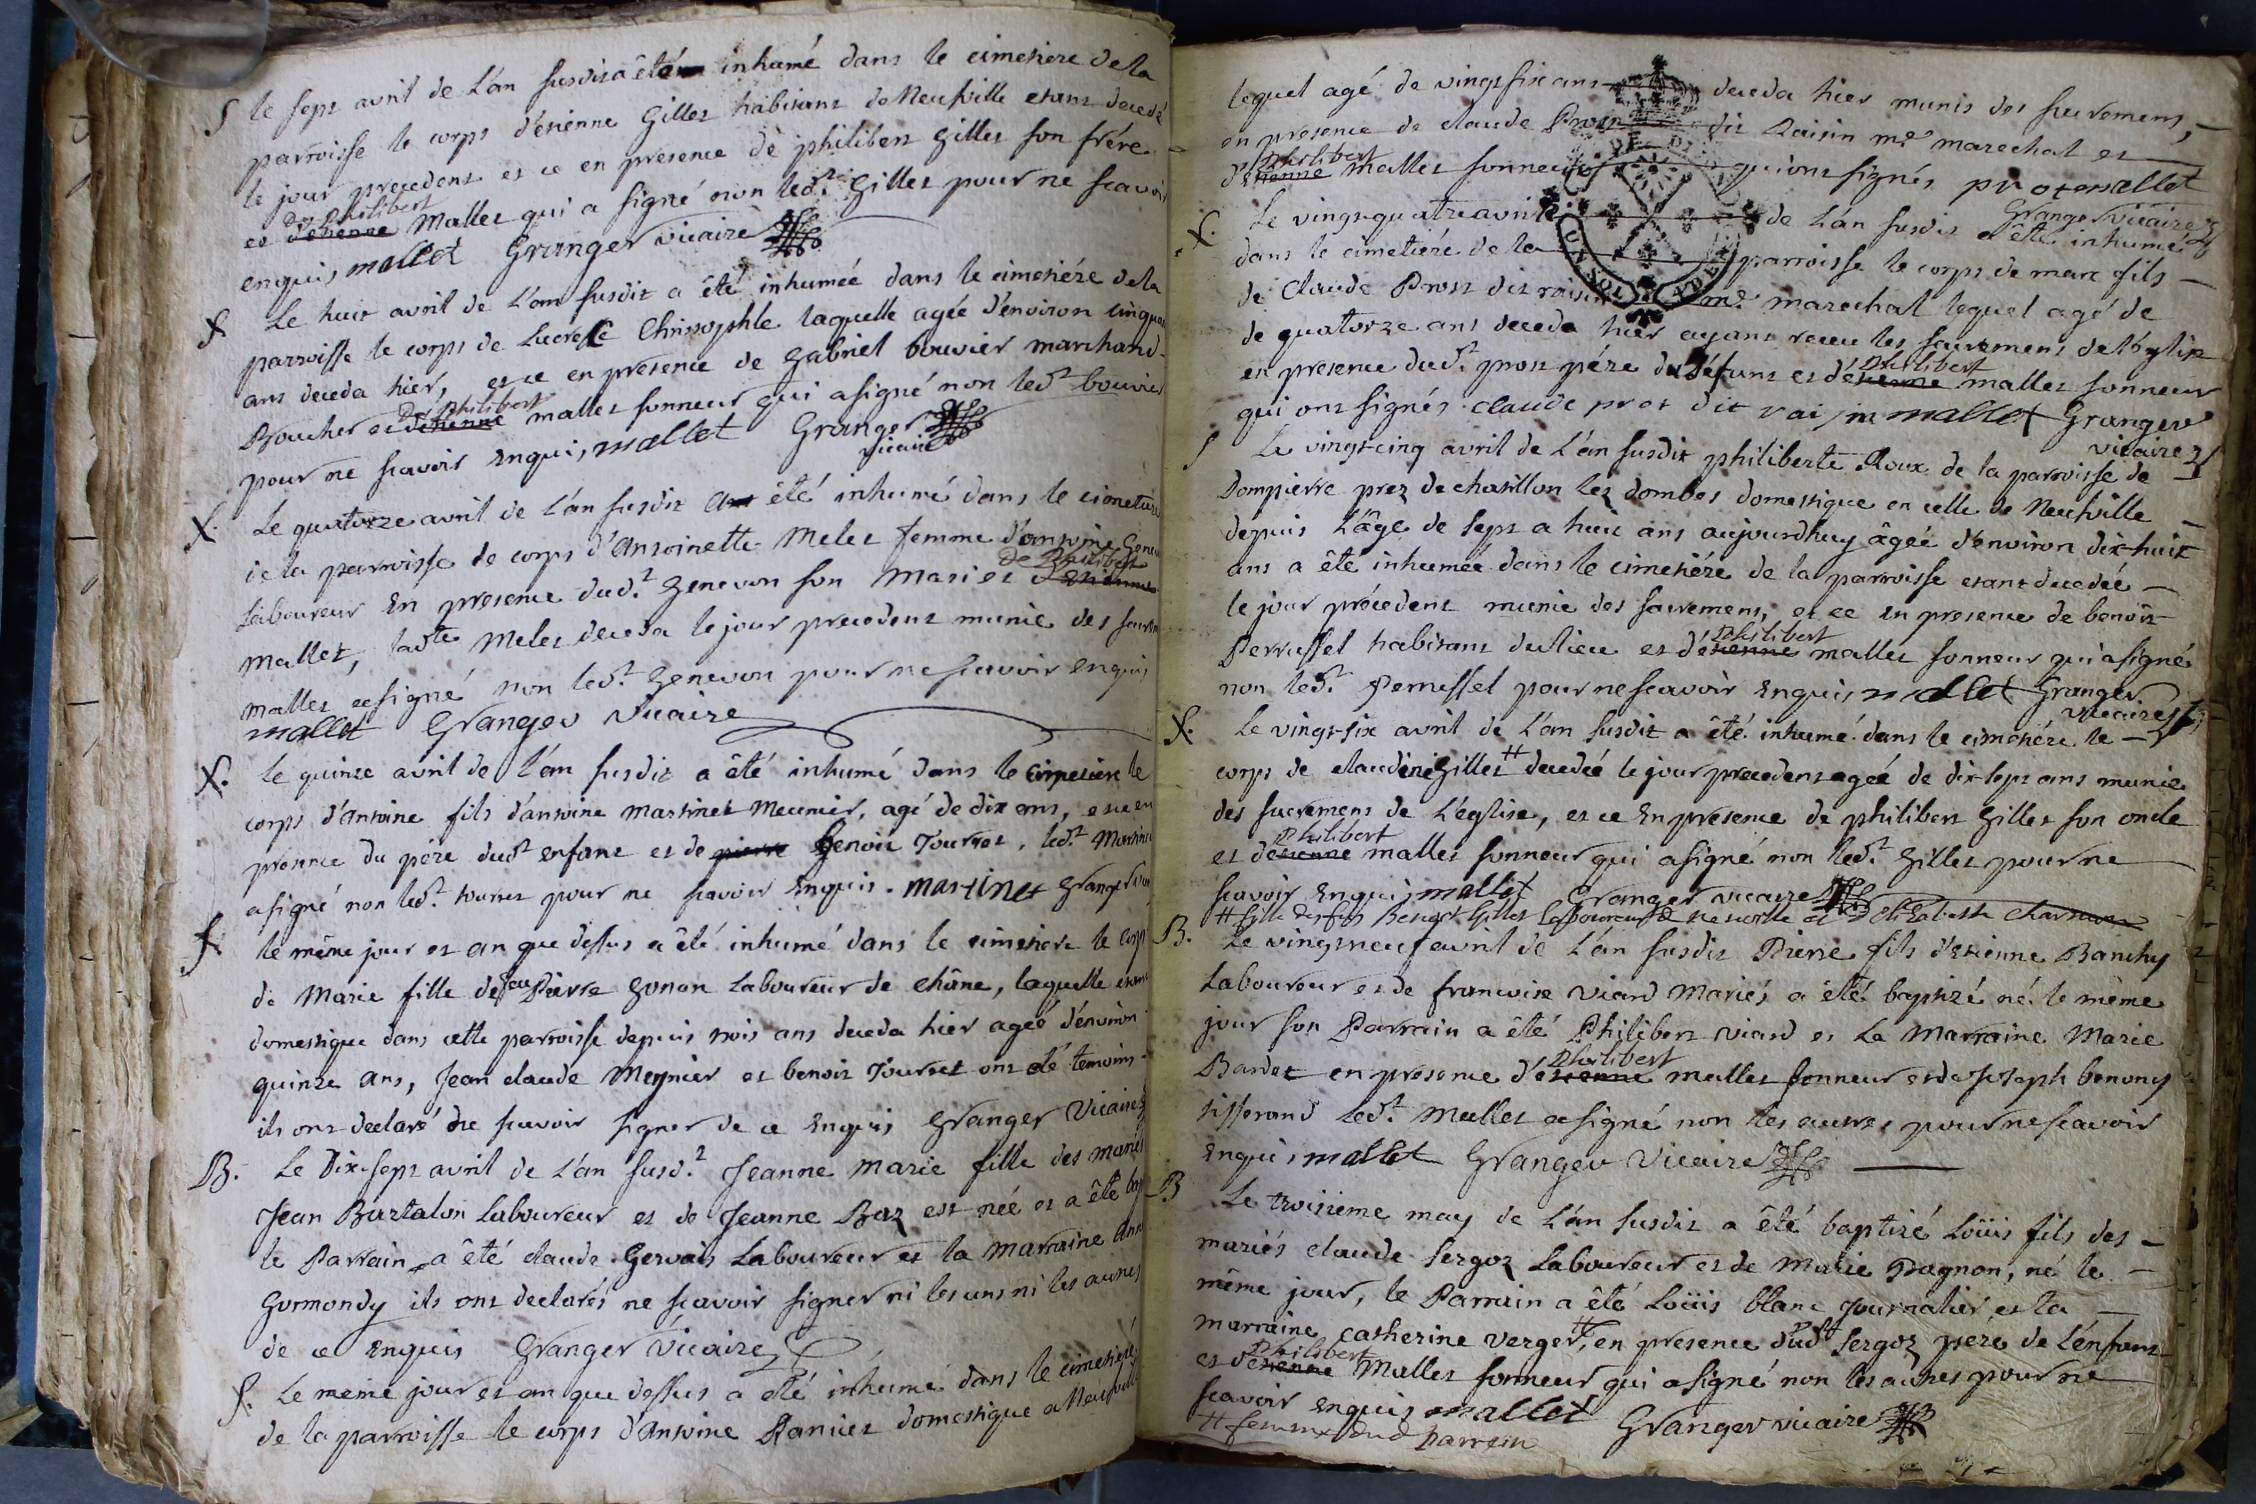 S le sept avril de L'an susdit a êté inhumé dans le cimetiere de la
parroisse le corps d'etienne Gillet habitant de Neufville etant decedé
le jour precedent et ce en presence de philibert Gillet son frére
de Philibert
et d'etienne Mallet qui a signé non led.t Gillet pour ne scavoir
enquis mallet Granger vicaire
S Le huit avril de L'an susdit a êté inhumée dans le cimetiére de la
parroisse le corps de Lucresse Christophle laquelle agée d'environ cinquante
ans deceda hier, et ce en presence de Gabriel bouvier marchand
de Philibert
Boucher et d'etienne mallet sonneur qui a signé non led.t bouvier
pour ne scavoir Enquis, mallet Granger
vicaire
S. Le quatorze avril de L'an susdit a êté inhumé dans le cimetiere
de la parroisse le corps d'Antoinette Melet femme d'antoine Genevon
de Philibert
Laboureur En presence dud.t Genevon son Mari et d'Etienne
Mallet, lad.te Melet deceda le jour precedent munie des sacremens
mallet a signé non led.t Genevon pour ne scavoir enquis
mallet Granger Vicaire
S. Le quinze avril de L'an susdit a êté inhumé dans le cimetiere le
corps d'Antoine fils d'antoine Martinet Meunier, agé de dix ans, et ce en
presence du pére dud.t enfant et de pierre Benoit Tourret, led.t Martinet
a signé non led.t tourret pour ne scavoir Enquis. martinet Granger vicaire
S le même jour et an que dessus a êté inhumé dans le cimetiere le corps
de Marie fille de feu Pierre Gonon Laboureur de Châne, laquelle etant
domestique dans cette parroisse depuis trois ans deceda hier ageé d'environ
quinze ans, Jean claude Meynier et benoit Tourret ont eté temoins
ils ont declaré ne scavoir signer de ce Enquis Granger Vicaire
B. Le Dix-sept avril de L'an susd.t Jeanne Marie fille des mariés
Jean Burtalon Laboureur et de Jeanne Baz est née et a êté bap
le Parrain a êté claude Gervais Laboureur et la Marraine Anne
Gormondy ils ont declarés ne scavoir signer ni les uns ni les autres
de ce Enquis Granger Vicaire
S. Le meme jour et an que dessus a eté inhumé dans le cimetiere
de la parroisse le corps d'Antoine Panier domestique a Neufville
lequel agé de vingt six ans deceda hier munis des sacremens,
en presence de claude Prost dit Raisin m.e marechal et
Philibert
d'etienne mallet sonneur qui ont signés prot mallet
Granger Vicaire
S. Le vingt-quatre avril de L'an susdit a êté inhumé
dans le cimetiére de la parroisse le corps de marc fils
de Claude Prost dit raisin m.e marechal lequel agé de
de quatorze ans deceda hier ayant receu les sacremens de l'église
Philibert
en presence dud.t prost pére du défunt et d'étienne mallet sonneur
qui ont signés. claude prot dit raisin mallet Granger
vicaire
S Le vingt-cinq avril de L'an susdit philiberte Roux de la parroisse de
Dompierre prez de chatillon lez dombes domestique en celle de Neufville
depuis L'âge de sept a huit ans aujourdhuy âgeé d'environ dix-huit
ans a êté inhumée dans le cimetiére de la parroisse etant decedeé
le jour précedent munie des sacremens, et ce en presence de benoit
Philibert
Perrussel habitant du lieu et d'étienne mallet sonneur qui a signé
non led.t Perrussel pour ne scavoir Enquis mallet Granger
vicaire
S. Le vingt-six avril de L'an susdit a êté inhumé dans le cimetiére le
corps de claudine Gillet # decedeé le jour precedent ageé de dix-sept ans munie
des sacremens de L'église, et ce En presence de philibert Gillet son oncle
Philibert
et d'etienne mallet sonneur qui a signé non led.t Gillet pour ne
scavoir Enquis mallet Granger vicaire
# fille de Benoit Gillet laboureur de neuville et d'Elisabeth
B. Le vingt neuf avril de L'an susdit Pierre fils d'etienne Banchy
Laboureur et de francoise Viard Mariés a êté baptizé né le même
jour son Parrain a êté Philibert Viard et La Marraine Marie
Philibert
Bardet en presence d'etienne mallet sonneur et de Joseph benony
tisserand led.t Mallet a signé non les autres pour ne scavoir
Enquis mallet Granger Vicaire
B Le troisiéme may de L'an susdit a êté baptizé Loüis fils des
mariés claude Sergoz Laboureur et de Marie Pagnon, né le
même jour, le Parrain a êté Loüis blanc Journalier et la
marraine catherine Verger #, en presence dud.t Sergoz pére de L'enfant
Philibert
et d'etienne Mallet sonneur qui a signé non les autres pour ne
scavoir enquis mallet Granger vicaire
# femme dud parrain